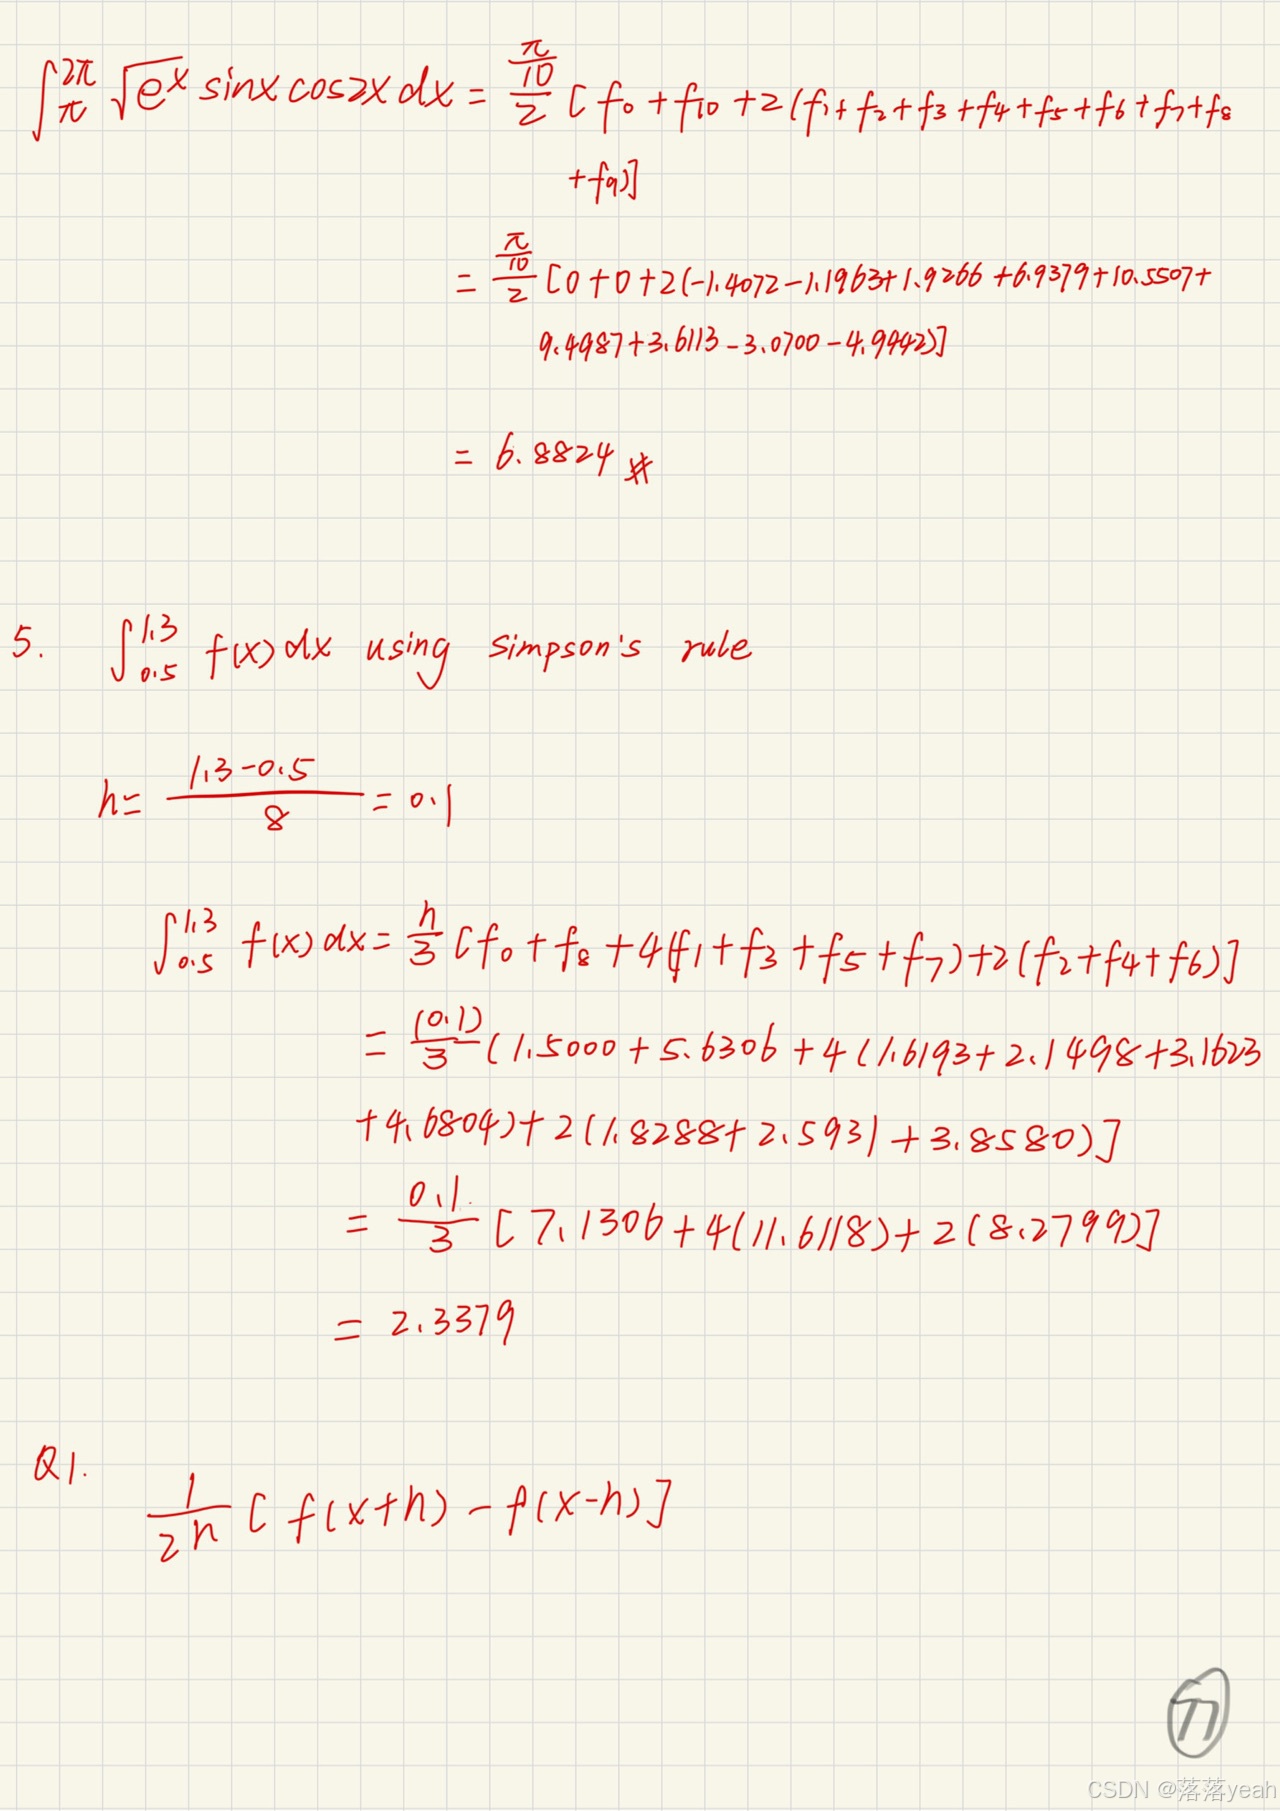 ∫_π^2π √e^x sinx cos2x dx = (π/10)/2 [f₀ + f₁₀ + 2(f₁ + f₂ + f₃ + f₄ + f₅ + f₆ + f₇ + f₈
+ f₉)]
= (π/10)/2 [0 + 0 + 2(-1.4072 - 1.1963 + 1.9266 + 6.9379 + 10.5507 +
9.4987 + 3.6113 - 3.0700 - 4.9442)]
= 6.8824 #
5. ∫_0.5^1.3 f(x) dx using simpson's rule
h = (1.3 - 0.5)/8 = 0.1
∫_0.5^1.3 f(x) dx = h/3 [f₀ + f₈ + 4(f₁ + f₃ + f₅ + f₇) + 2(f₂ + f₄ + f₆)]
= (0.1)/3 (1.5000 + 5.6306 + 4(1.6193 + 2.1498 + 3.1623
+ 4.6804) + 2(1.8288 + 2.5931 + 3.8580)]
= 0.1/3 [7.1306 + 4(11.6118) + 2(8.2799)]
= 2.3379
Q1.
1/2h [f(x+h) - f(x-h)]
77
CSDN @落落yeah